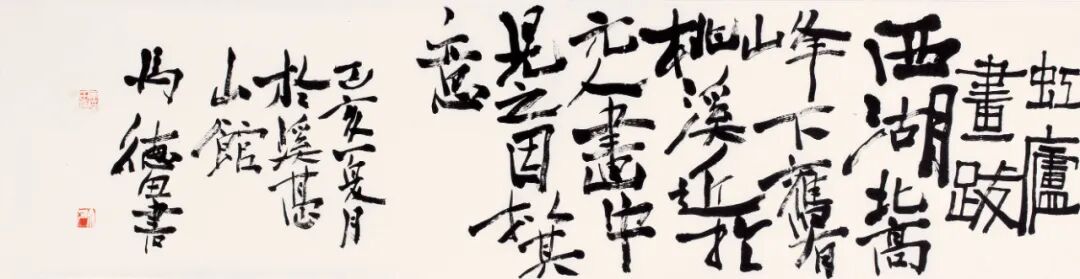 虹廬
畫跋
西湖北高
峰下舊有
桃溪近於
元人畫中
見之因
意
己亥夏月
於溪
山館
德書